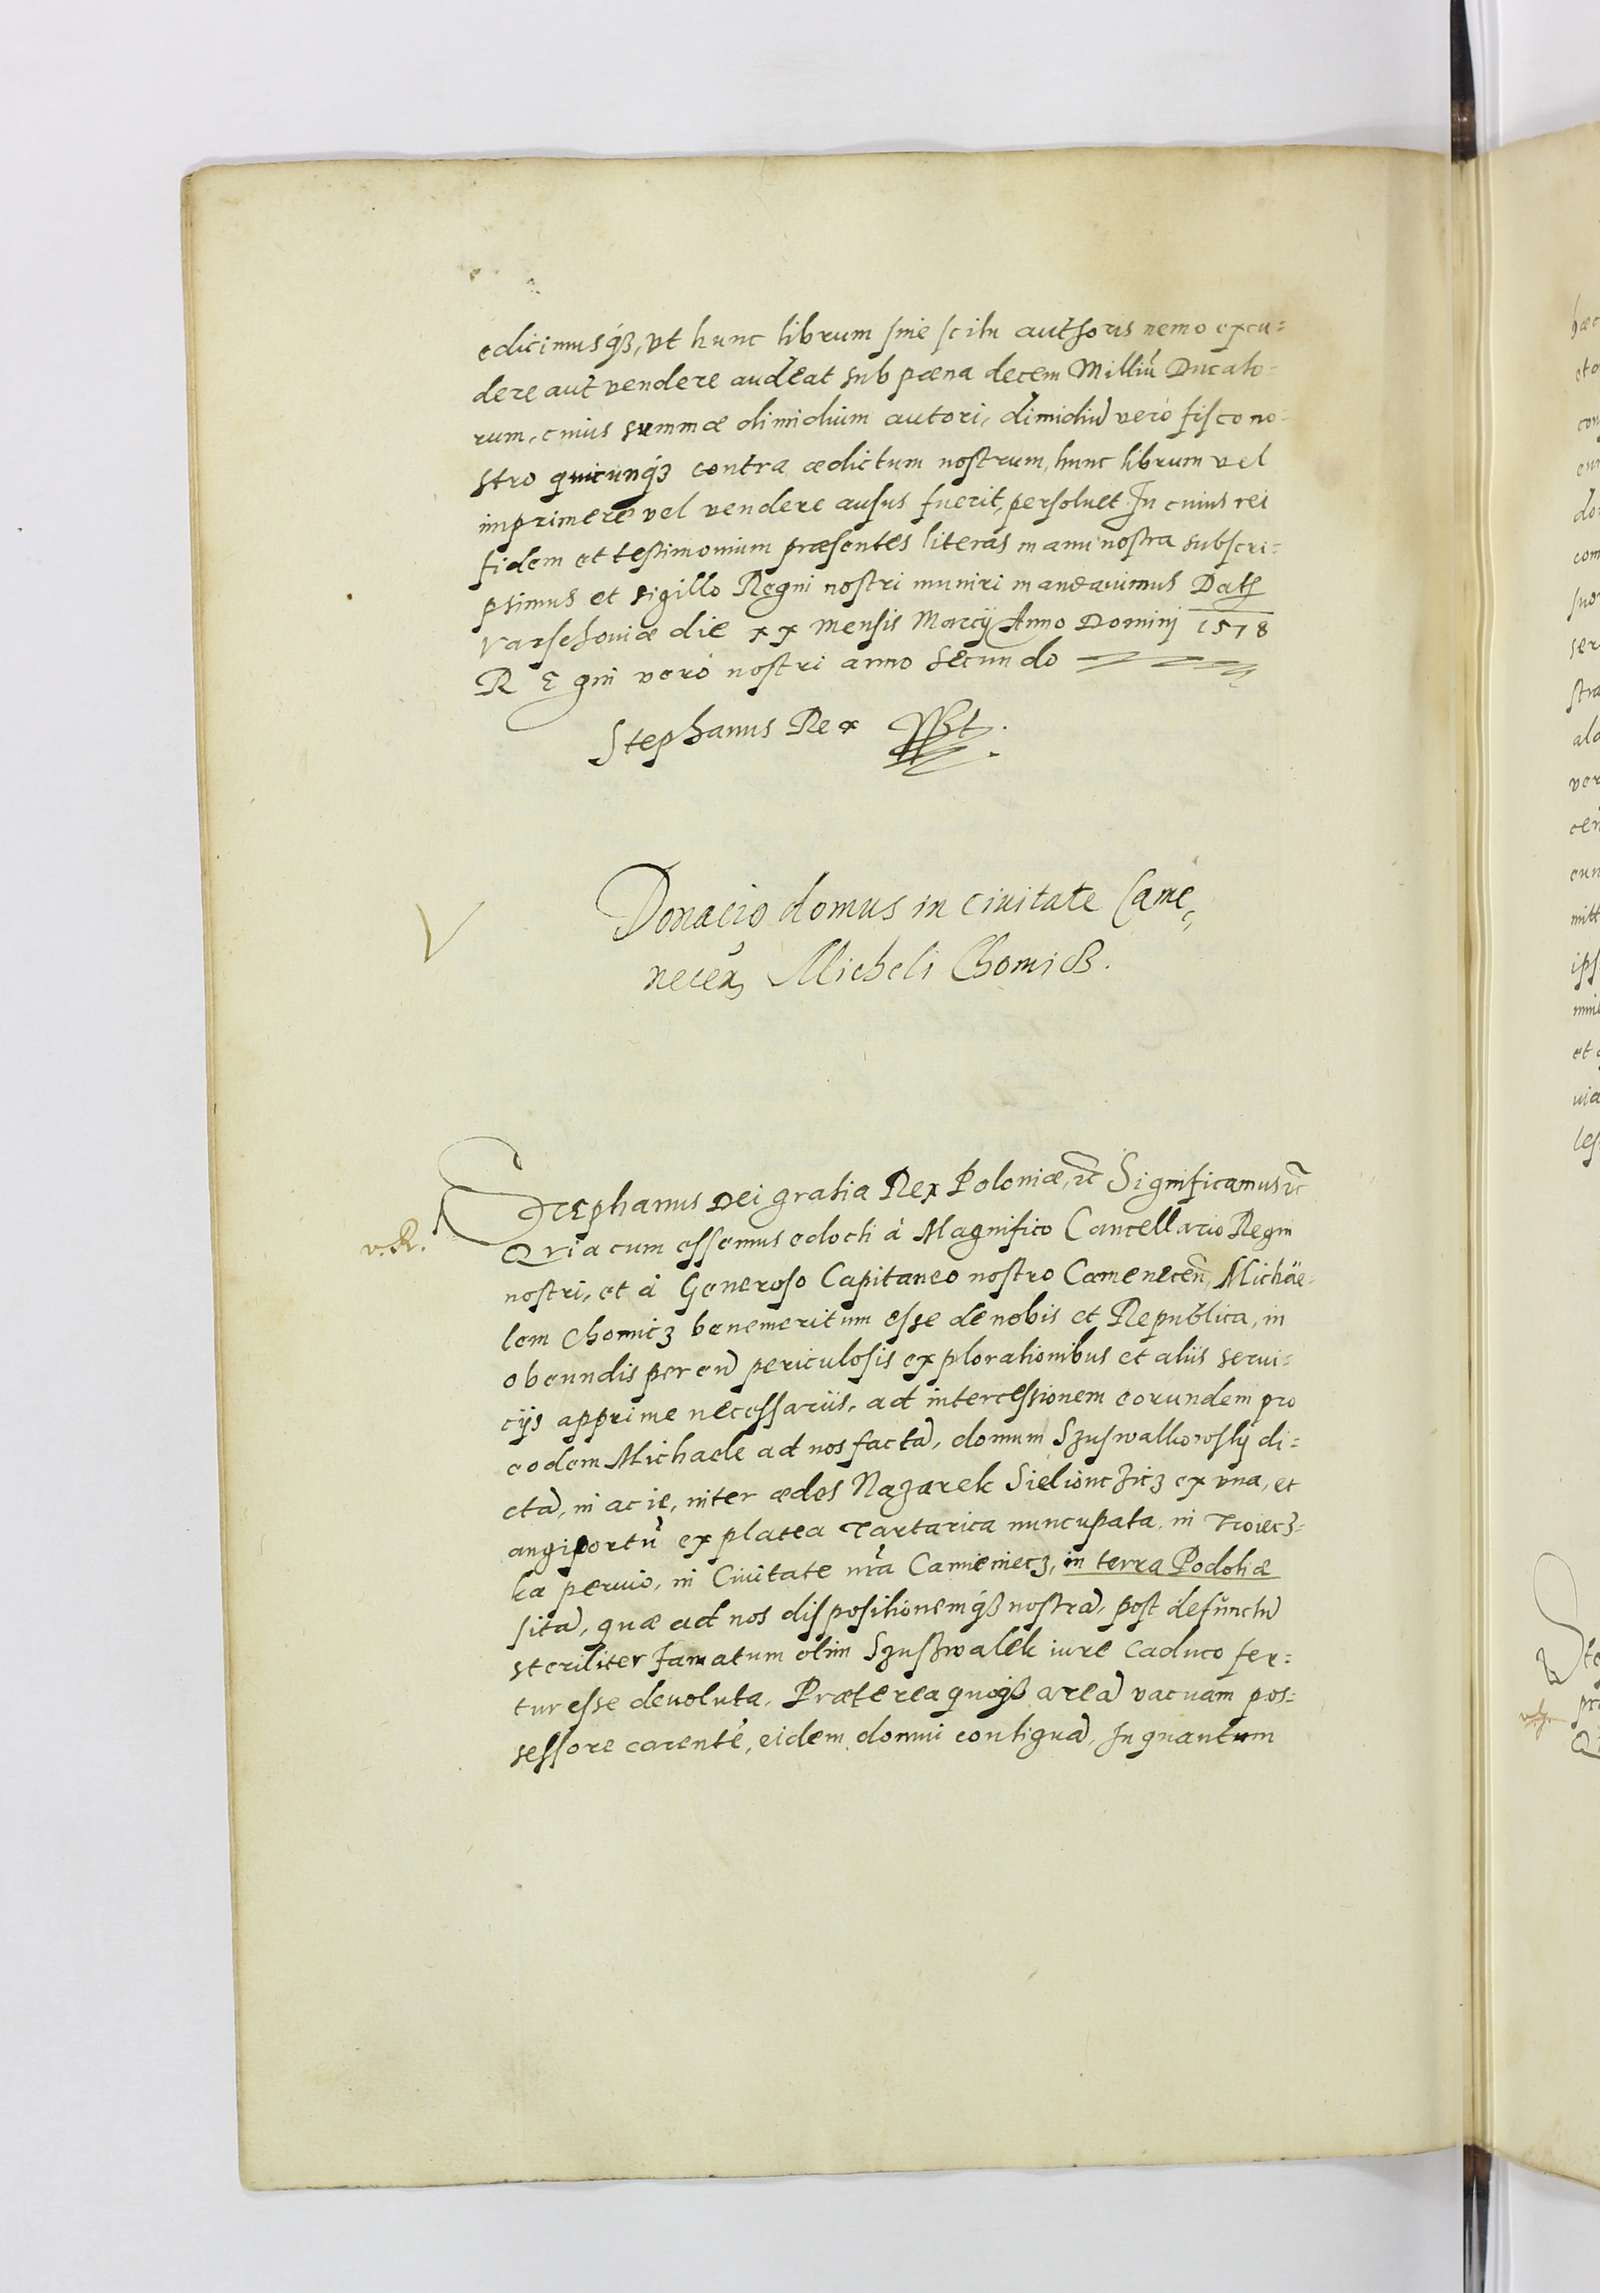 edicimusqȝ, vt hunc librum sine scitu authoris nemo excu=
dere aut vendere audeat sub pæna decem Milliũ Ducato=
rum, cuius summæ dimidium autori, dimidiũ verò fisco no=
stro quicunqȝ contra ædictum nostrum, hunc librum vel
imprimere vel vendere ausus fuerit, persoluet. In cuius rei
fidem et testimonium præsentes literas manu nostra subscri=
psimus et sigillo Regni nostri muniri mandauimus Dat
Varschouiæ die xx mensis Marcij Anno Domini 1578
REgni verò nostri anno secundo
Stephanus Rex
Donacio domus in ciuitate Came
necen Micheli Chomicz.
Stephanus Dei gratia Rex Poloniæ, etc Significamus etc
v. R.
Quia cum essemus edocti à Magnifico Cancellario Regni
nostri, et à Generoso Capitaneo nostro Camenecen̄, Michäe=
lem Chomicz benemeritum esse de nobis et Republica, in
obeundis per eũ periculosis explorationibus et aliis serui=
cijs apprime necessariis, ad intercessionem eorundem pro
eodem Michaele ad nos factã, domum Szuswalkowskij di=
ctã, in acie, inter ædes Nazarek Sielionczicz ex vna, et
angiportũ ex platea Tartarica nuncupata, in Troiecz=
ka peruio, in Ciuitate nr̃a Camieniecz, in terra Podoliæ
sitã, quæ ad nos dispositionemqȝ nostrã, post defunctũ
steriliter famatum olim Szuszwalek iure caduco fer=
tur esse deuoluta. Præterea quoqȝ areã vacuam pos=
sessore carentẽ, eidem domui contiguã, In quantum